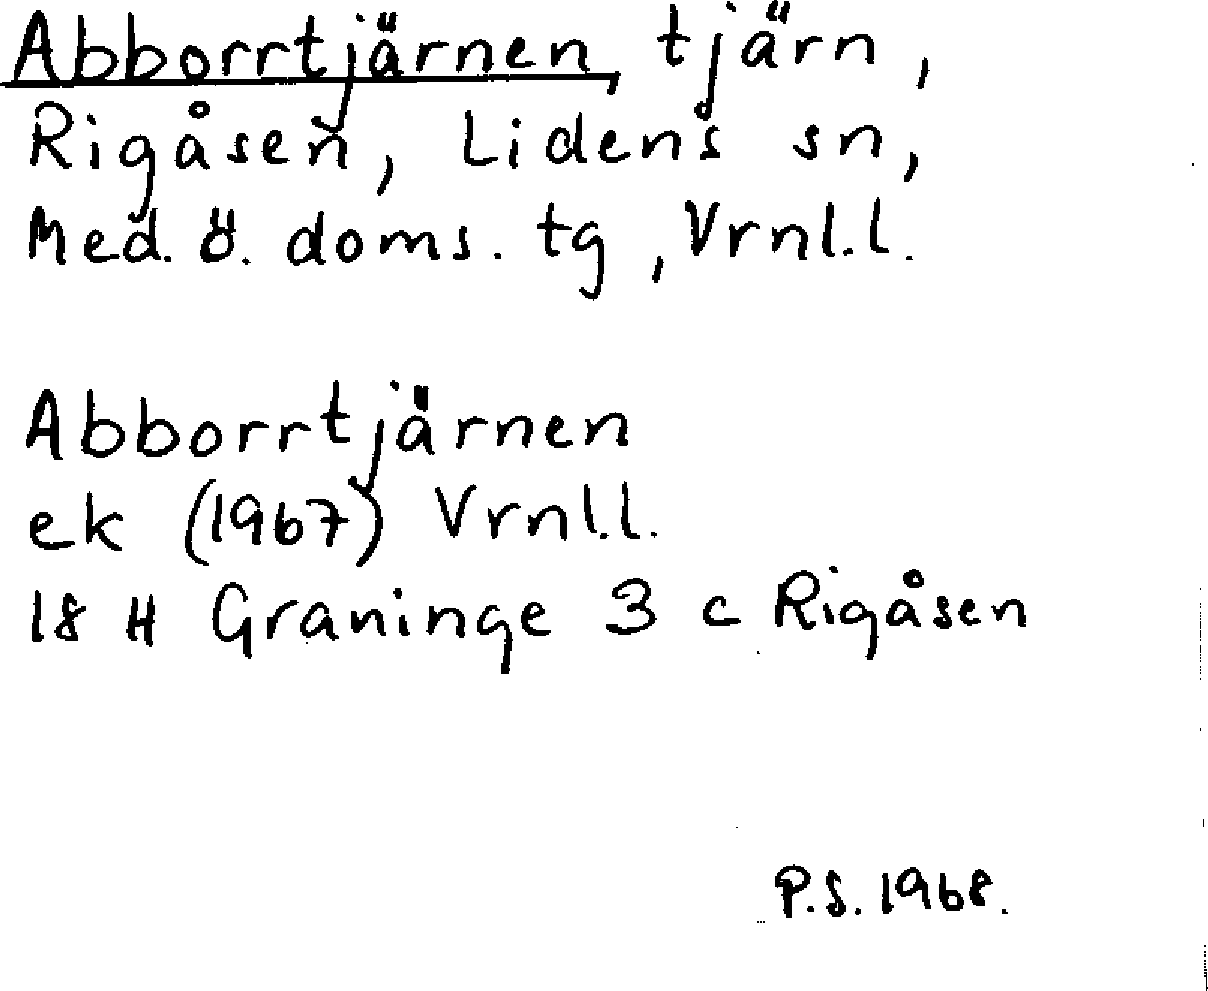 Abborrtjärnen, tjärn,
Rigåsen, Lidens sn,
Med. ö. doms. tg, Vrnl.l.
Abborrtjärnen
ek (1967) Vrnl.l.
18 H Graninge 3 c Rigåsen
P.S. 1968.